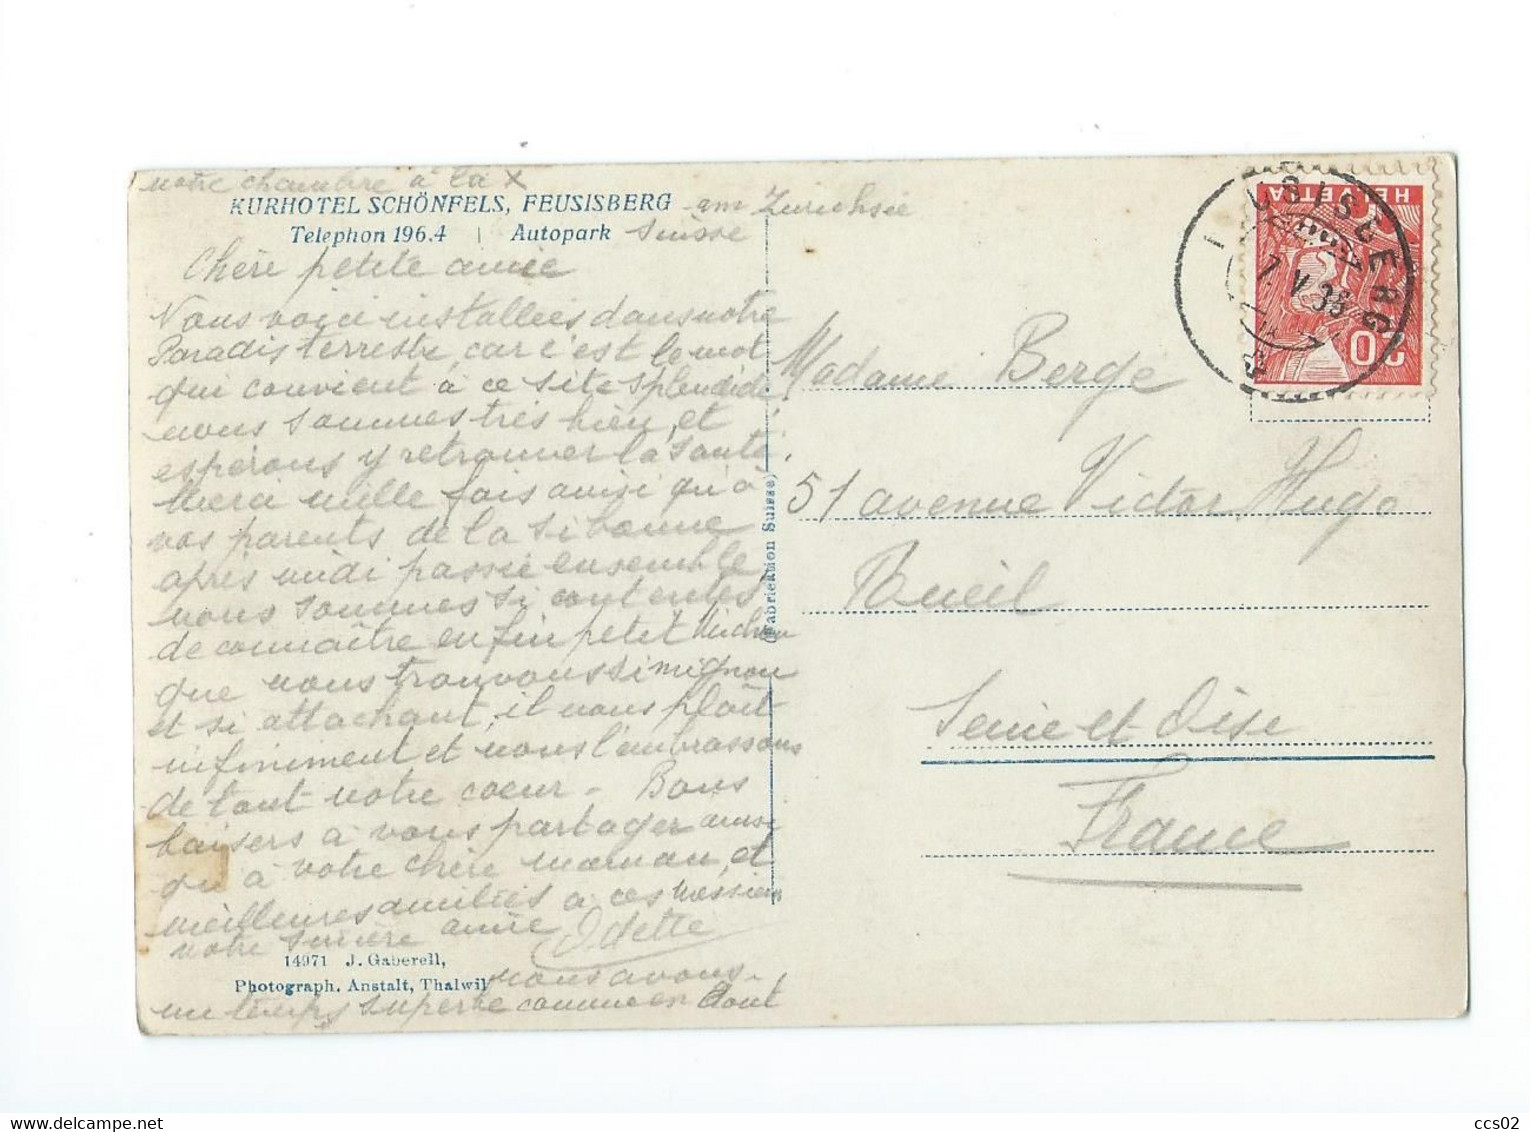 notre chambre à la x
KURHOTEL SCHÖNFELS, FEUSISBERG am Zürichsee
Telephon 196.4 | Autopark Suisse
Chère petite amie
Nous voici installées dans notre
Paradis terrestre, car c'est le mot
qui convient à ce site splendide,
nous sommes très bien, et
espérons y retrouver la santé.
Merci mille fois ainsi qu'à
vos parents de la si bonne
après midi passée ensemble,
nous sommes si contentes
de connaître enfin petit
que nous trouvons si mignon
et si attachant, il nous plaît
infiniment et nous l'embrassons
de tout notre coeur - Bons
baisers à vous partager ainsi
qu'à votre chère maman, et
meilleures amitiés à ces messieurs
votre sincère amie Odette
14971 J. Gaberell,
Photograph. Anstalt, Thalwil
nous avons
un temps superbe comme en Août
(Fabrication Suisse)
HELVETIA
30
FEUSISBERG
7. V. 38
Madame Berge
51 avenue Victor Hugo
Rueil
Seine et Oise
France
ccs02